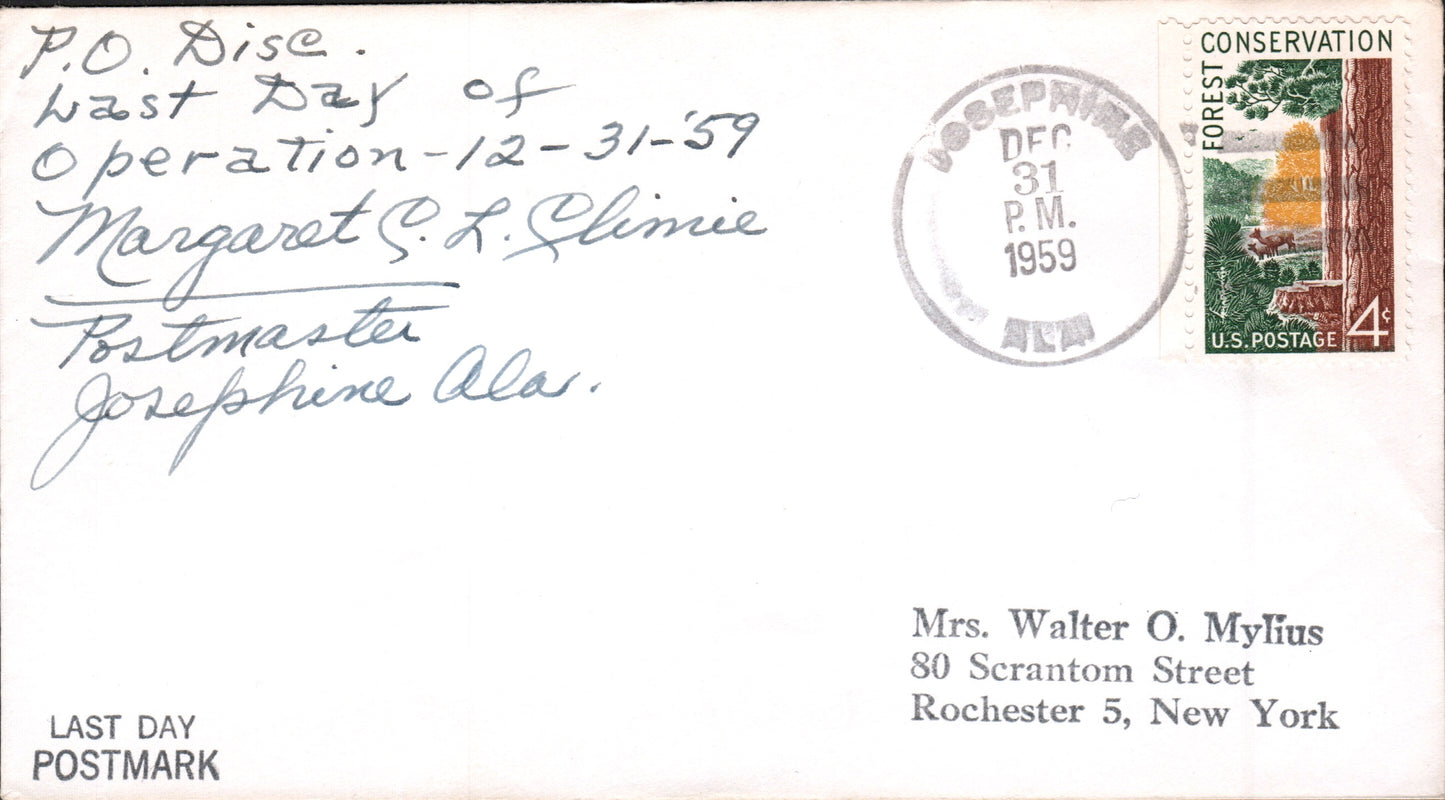 P.O. Disc.
Last Day of
Operation-12-31-'59
Margaret C. L. Climie
Postmaster
Josephine Ala.
JOSEPHINE
DEC
31
P.M.
1959
ALA
FOREST CONSERVATION
U.S. POSTAGE 4¢
Mrs. Walter O. Mylius
80 Scrantom Street
Rochester 5, New York
LAST DAY
POSTMARK